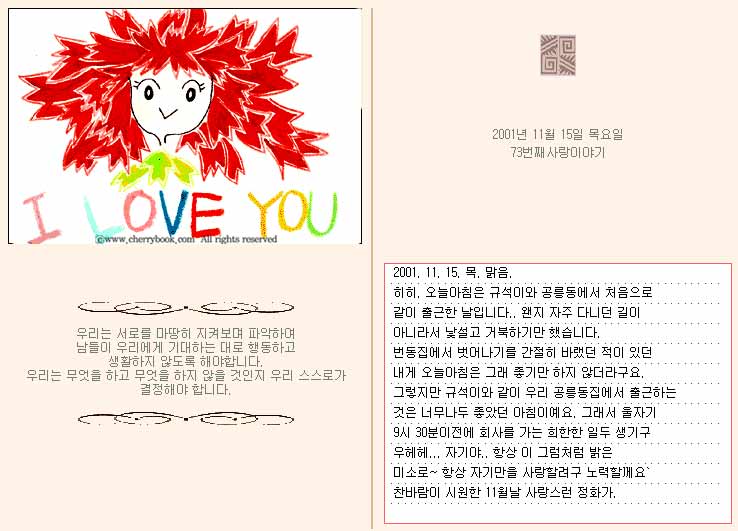 I LOVE YOU
ⓒwww.cherrybook.com All rights reserved
우리는 서로를 마땅히 지켜보며 파악하며
남들이 우리에게 기대하는 대로 행동하고
생활하지 않도록 해야합니다.
우리는 무엇을 하고 무엇을 하지 않을 것인지 우리 스스로가
결정해야 합니다.
2001년 11월 15일 목요일
73번째사랑이야기
2001. 11. 15. 목. 맑음.
히히. 오늘아침은 규석이와 공릉동에서 처음으로
같이 출근한 날입니다.. 왠지 자주 다니던 길이
아니라서 낯설고 거북하기만 했습니다.
번동집에서 벗어나기를 간절히 바랬던 적이 있던
내게 오늘아침은 그래 좋기만 하지 않더라구요.
그렇지만 규석이와 같이 우리 공릉동집에서 출근하는
것은 너무나두 좋았던 아침이예요. 그래서 울자기
9시 30분이전에 회사를 가는 희한한 일두 생기구
우헤헤... 자기야.. 항상 이 그럼처럼 밝은
미소로~ 항상 자기만을 사랑할려구 노력할께요`
찬바람이 시원한 11월날 사랑스런 정화가.